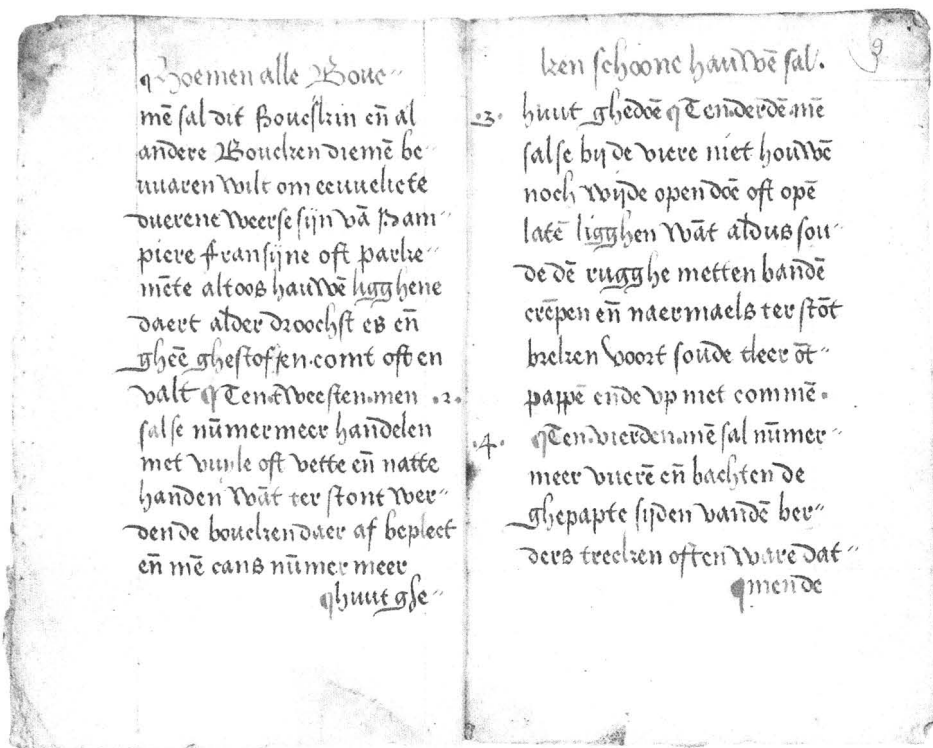 ¶Hoemen alle Bouc〃
mē sal dit Boucskin eñ al
andere Boucken diemē be〃
uuaren wilt om eeuuelicte
duerene weerse sijn vā Pam〃
piere fransijne oft parke〃
mēte altoos hauwē ligghene
daert alder droochst es eñ
gheē ghestof en comt oft en
valt ¶ Ten tweesten men ·2·
salse nūmermeer handelen
met vuyle oft vette eñ natte
handen wāt ter stont wer〃
den de boucken daer af beplect
eñ mē cans nūmer meer
¶huut ghe〃
9
ken schoone hauwē sal.
·3· huut ghedoē ¶Ten derdē mē
salse bij de viere niet houwē
noch wijde open doē oft opē
latē ligghen wāt aldus sou〃
de dē rugghe metten bandē
crēpen eñ naermaels ter stōt
breken voort soude tleer ōt〃
pappē ende vp niet commē.
·4· ¶Ten vierden mē sal nūmer〃
meer vuerē eñ bachten de
ghepapte sijden vandē ber〃
ders trecken oft en ware dat〃
¶mende